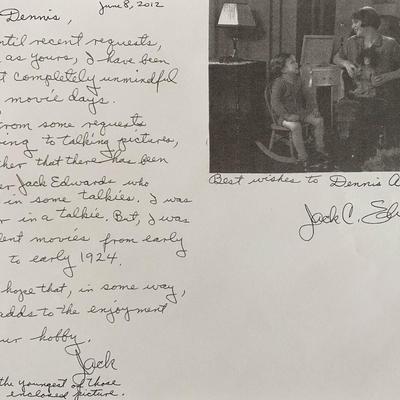 June 8, 2012
Dennis,
until recent requests,
as yours, I have been
completely unmindful
movie days.
from some requests
to talking pictures,
that there has been
Jack Edwards who
in some talkies. I was
in a talkie. But, I was
movies from early
to early 1924.
hope that, in some way,
adds to the enjoyment
hobby.
Jack
the youngest of those
enclosed picture.
Best wishes to Dennis A
Jack C.